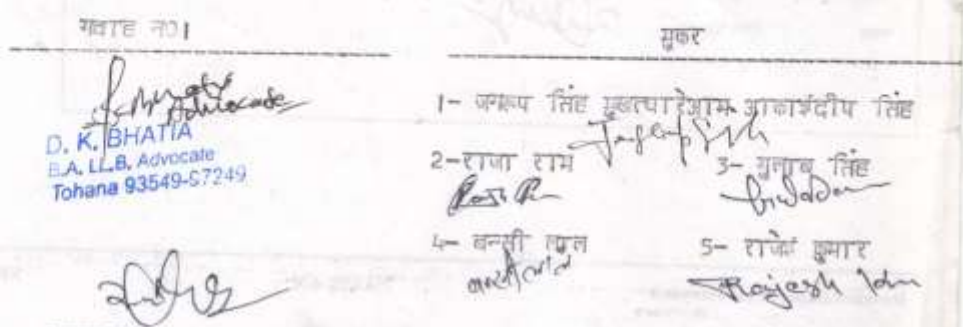 गवाह नं01
मुकर
Advocate
D. K. BHATIA
B.A. LL.B. Advocate
Tohana 93549-57249
1- जगरूप सिंह मुखत्यारेआम आकाशदीप सिंह
2- राजा राम
3- गुलाब सिंह
4- बन्सी लाल
5- राजेश कुमार
बन्सीलाल
Rajesh